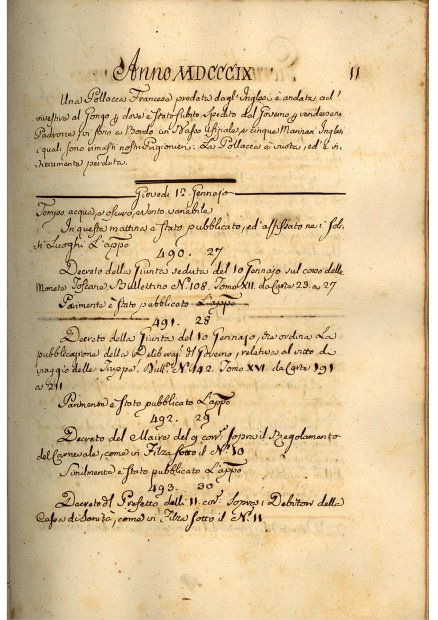 Anno MDCCCIX 11
Una Pollacca Francese predata dagl'Inglesi è andata ad'
investire al Gongo, e dove è stato subito spedito dal Governo p. renderne
Padrona; vi sono a Bordo un Basso Uffiziale, e cinque Marinari Inglesi
i quali sono rimasti nostri Prigionieri: La Pollacca è vuota, ed' è in-
tieramente perduta.
Giovedì 12. Gennajo
Tempo acqua, e oscuro, e Vento variabile
In questa mattina è stato pubblicato, ed' affissato ne i soli-
ti Luoghi L'app.o
490. 27
Decreto della Giunta seduta del 10 Gennajo sul corso delle
Monete Toscane. Bullettino N.o 108. Tomo XII. da Carte 23. a 27
Parimente è stato pubblicato L'app.o
491. 28
Decreto della Giunta del 10 Gennajo, che ordina La
pubblicazione della Deliberaz. del Governo, relativa al vitto di
viaggio delle Truppe. Bull. N.o 142. Tomo XVI. da Carte 191
a 211
Parimente è stato pubblicato L'app.o
492. 29
Decreto del Maire del 9 corr.e sopra il Regolamento
del Carnevale, come in Filza sotto il N.o 10
Similmente è stato pubblicato L'app.o
493. 30
Decreto del Prefetto delli 11. cor.e sopra i Debitori della
Cassa di Sanità, come in Filza sotto il N.o 11